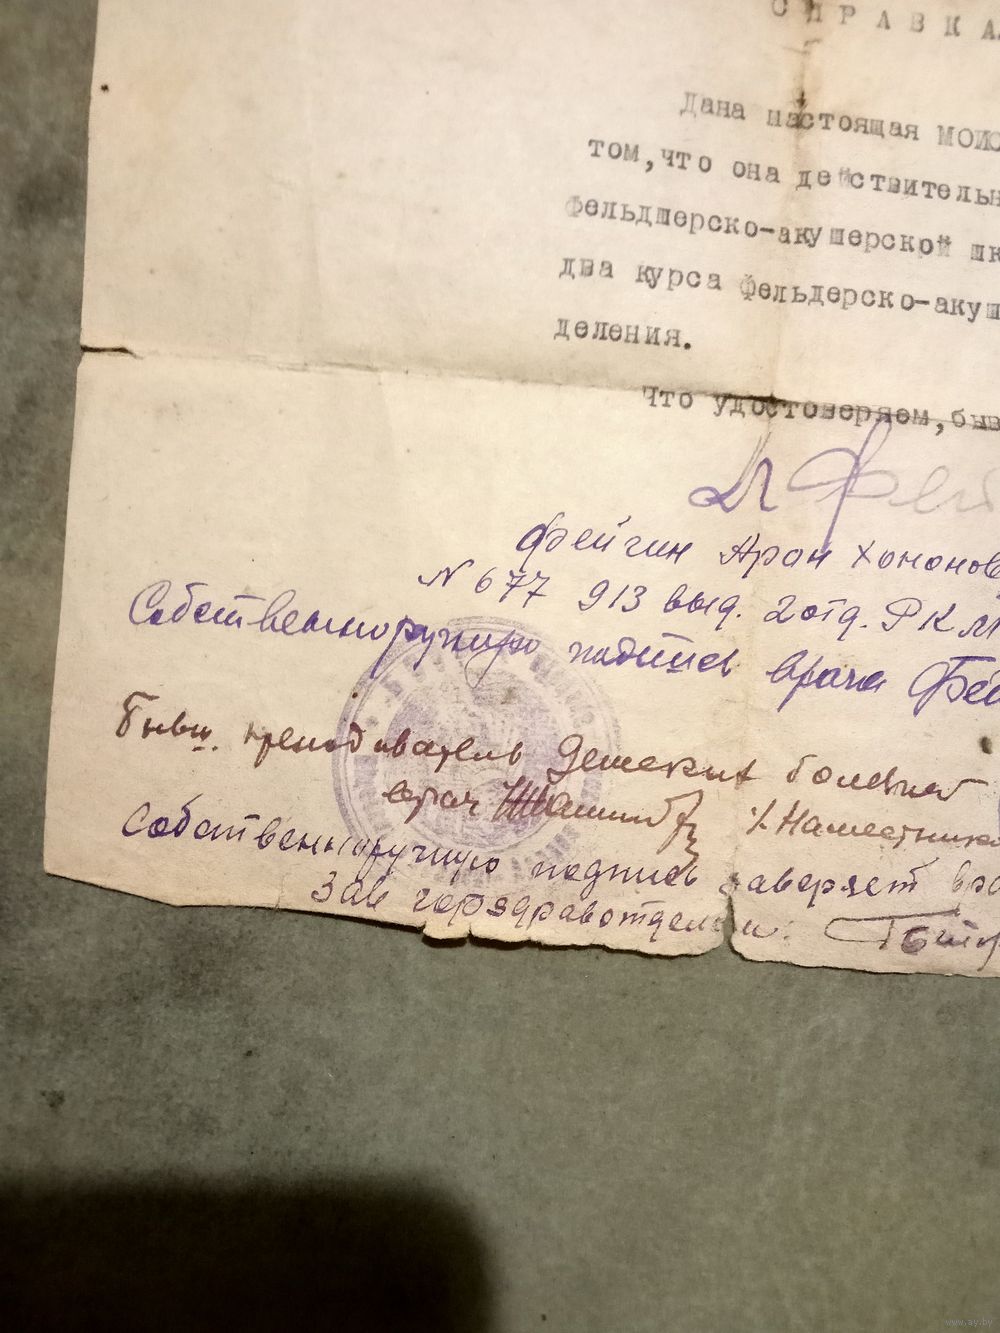 СПРАВКА
Дана настоящая МОИС
том,что она действительн
Фельдшерско-акушерской шк
два курса Фельдерско-акуш
деления.
Что удостоверяем,быв
Фей
Фейгин Арон Хононов
N 677 913 выд. 2 отд. РКМ
Собственноручную подпись врача Фей
Бывш. преподаватель Детских болезней
врач /Наместников
Собственноручную подпись заверяет вра
Зав горздравотделом:
www.ay.by